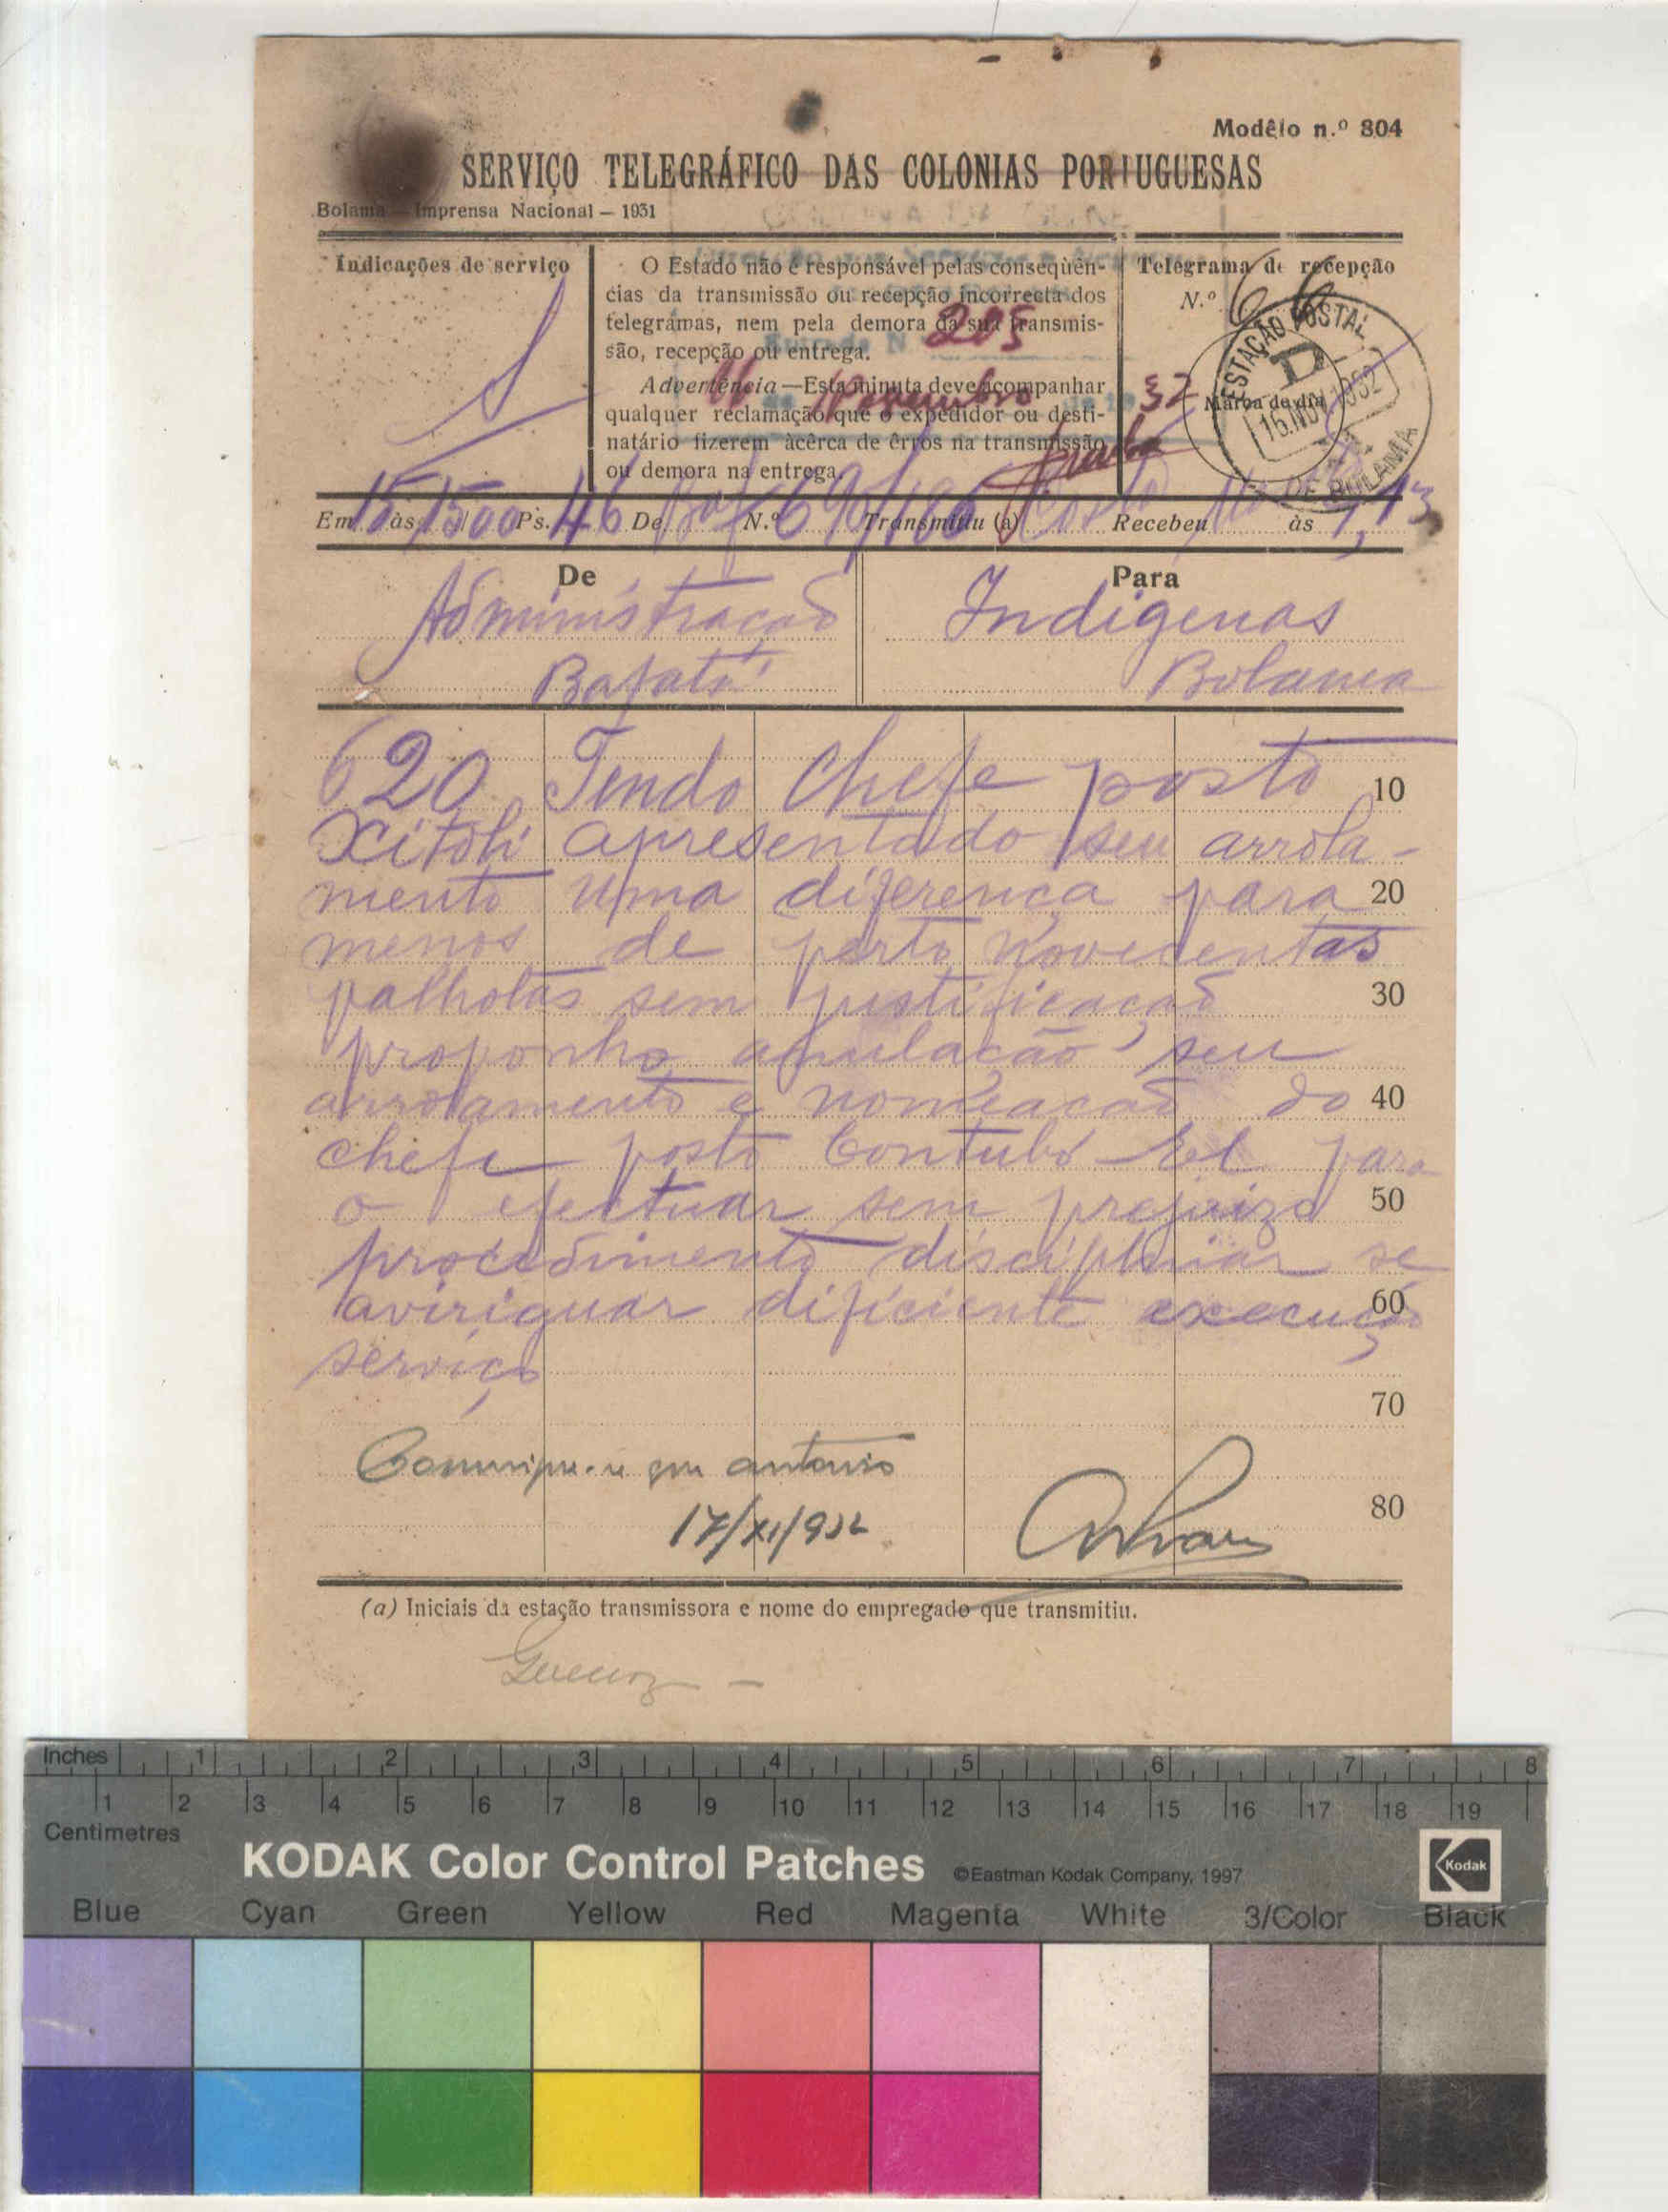 Modêlo n.º 804
SERVIÇO TELEGRÁFICO DAS COLONIAS PORTUGUESAS
Bolama — Imprensa Nacional — 1931
Indicações de serviço
O Estado não é responsável pelas conseqüên-
cias da transmissão ou recepção incorrecta dos
telegramas, nem pela demora da sua transmis-
são, recepção ou entrega.
Advertência—Esta minuta deve acompanhar
qualquer reclamação que o expedidor ou desti-
natário fizerem àcêrca de êrros na transmissão
ou demora na entrega.
205
16 Novembro 32
Telegrama de recepção
N.º 66
Marca de dia
ESTAÇÃO POSTAL
16.NOV.1932
DE BOLAMA
Em 15 às 1500 Ps. 46 De Baf N.º 690/186 Transmitiu (a) Costa Recebeu às
De
Administração
Bafatá
Para
Indigenas
Bolama
620 Tendo Chefe posto
Xitoli apresentado seu arrola-
mento uma diferença para
menos de perto novecentas
palhotas sem justificação
proponho anulação seu
arrolamento e nomeação do
chefe posto Contubo El para
o efectuar sem prejuizo
procedimento disciplinar se
aviriguar dificiente execução
serviço
10
20
30
40
50
60
70
80
17/XI/932
(a) Iniciais da estação transmissora e nome do empregado que transmitiu.
Inches 1 2 3 4 5 6 7 8
1 2 3 4 5 6 7 8 9 10 11 12 13 14 15 16 17 18 19
Centimetres
KODAK Color Control Patches ©Eastman Kodak Company, 1997 Kodak
Blue Cyan Green Yellow Red Magenta White 3/Color Black